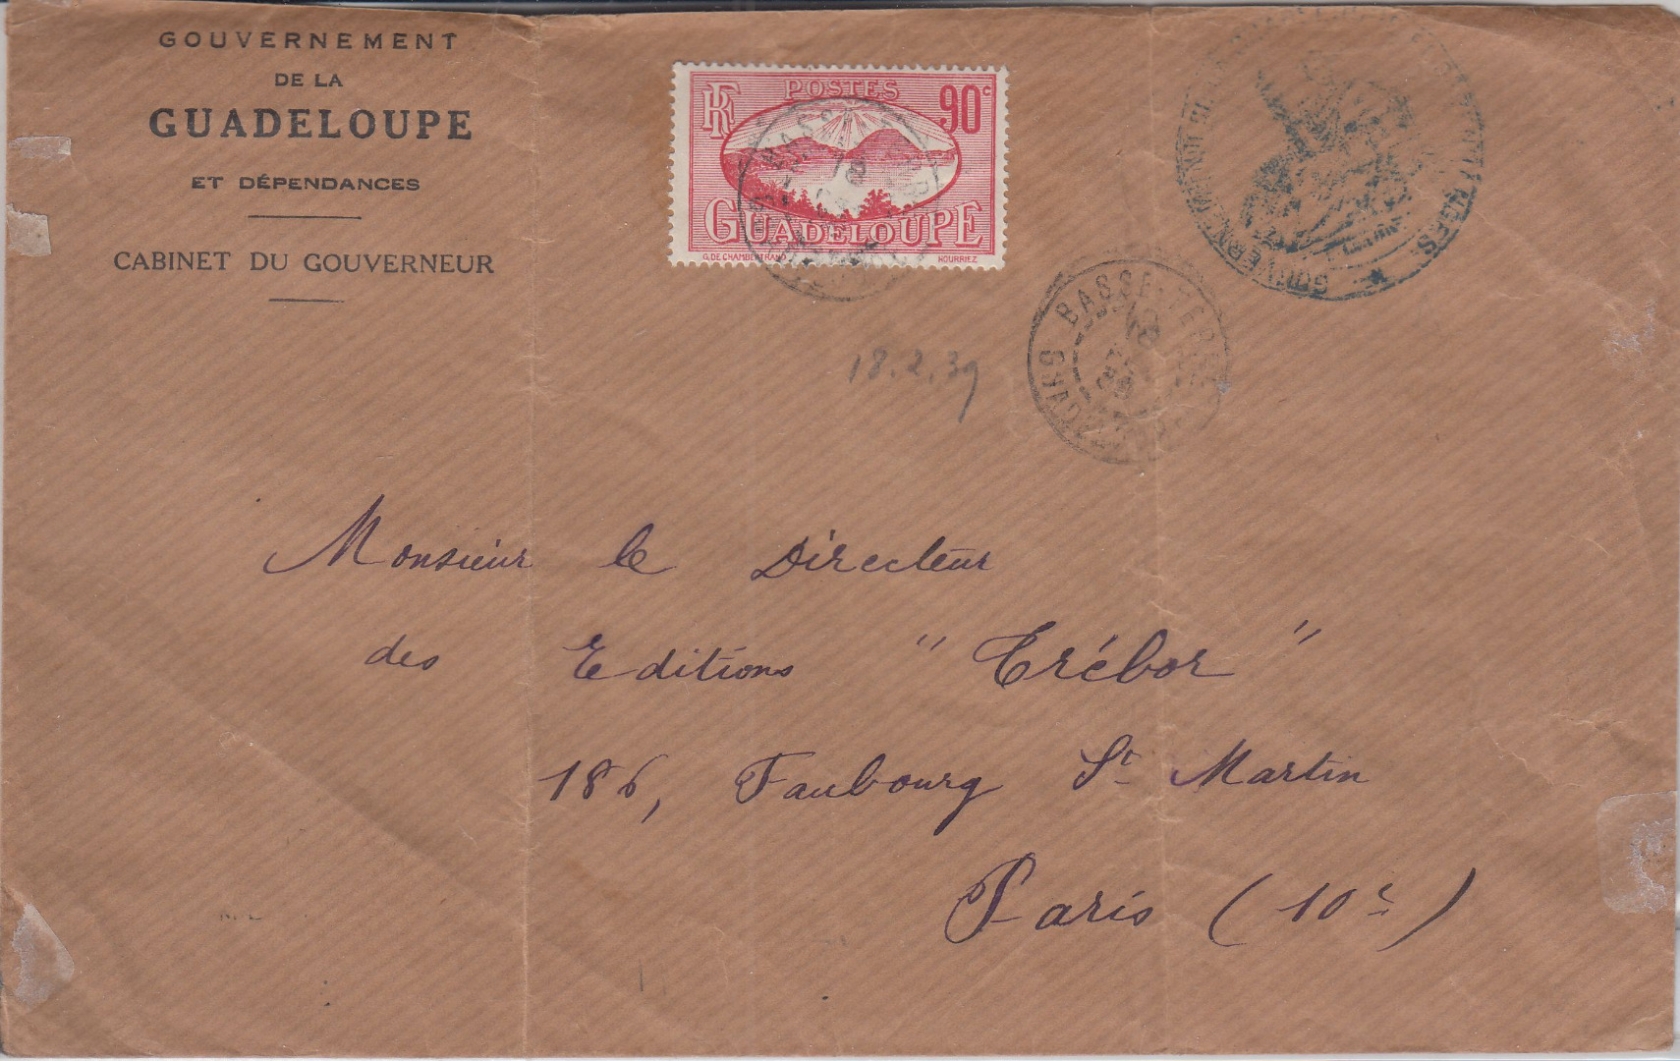 GOUVERNEMENT
DE LA
GUADELOUPE
ET DÉPENDANCES
CABINET DU GOUVERNEUR
RF POSTES 90c
GUADELOUPE
G.DE CHAMBERTRAND NOURRIEZ
BASSE-TERRE
18
18.2.39
Monsieur le Directeur
des Editions "Trébor"
186, Faubourg St Martin
Paris (10e)